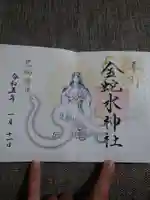 奉拝
金蛇水神社
令和五年
一月十一日